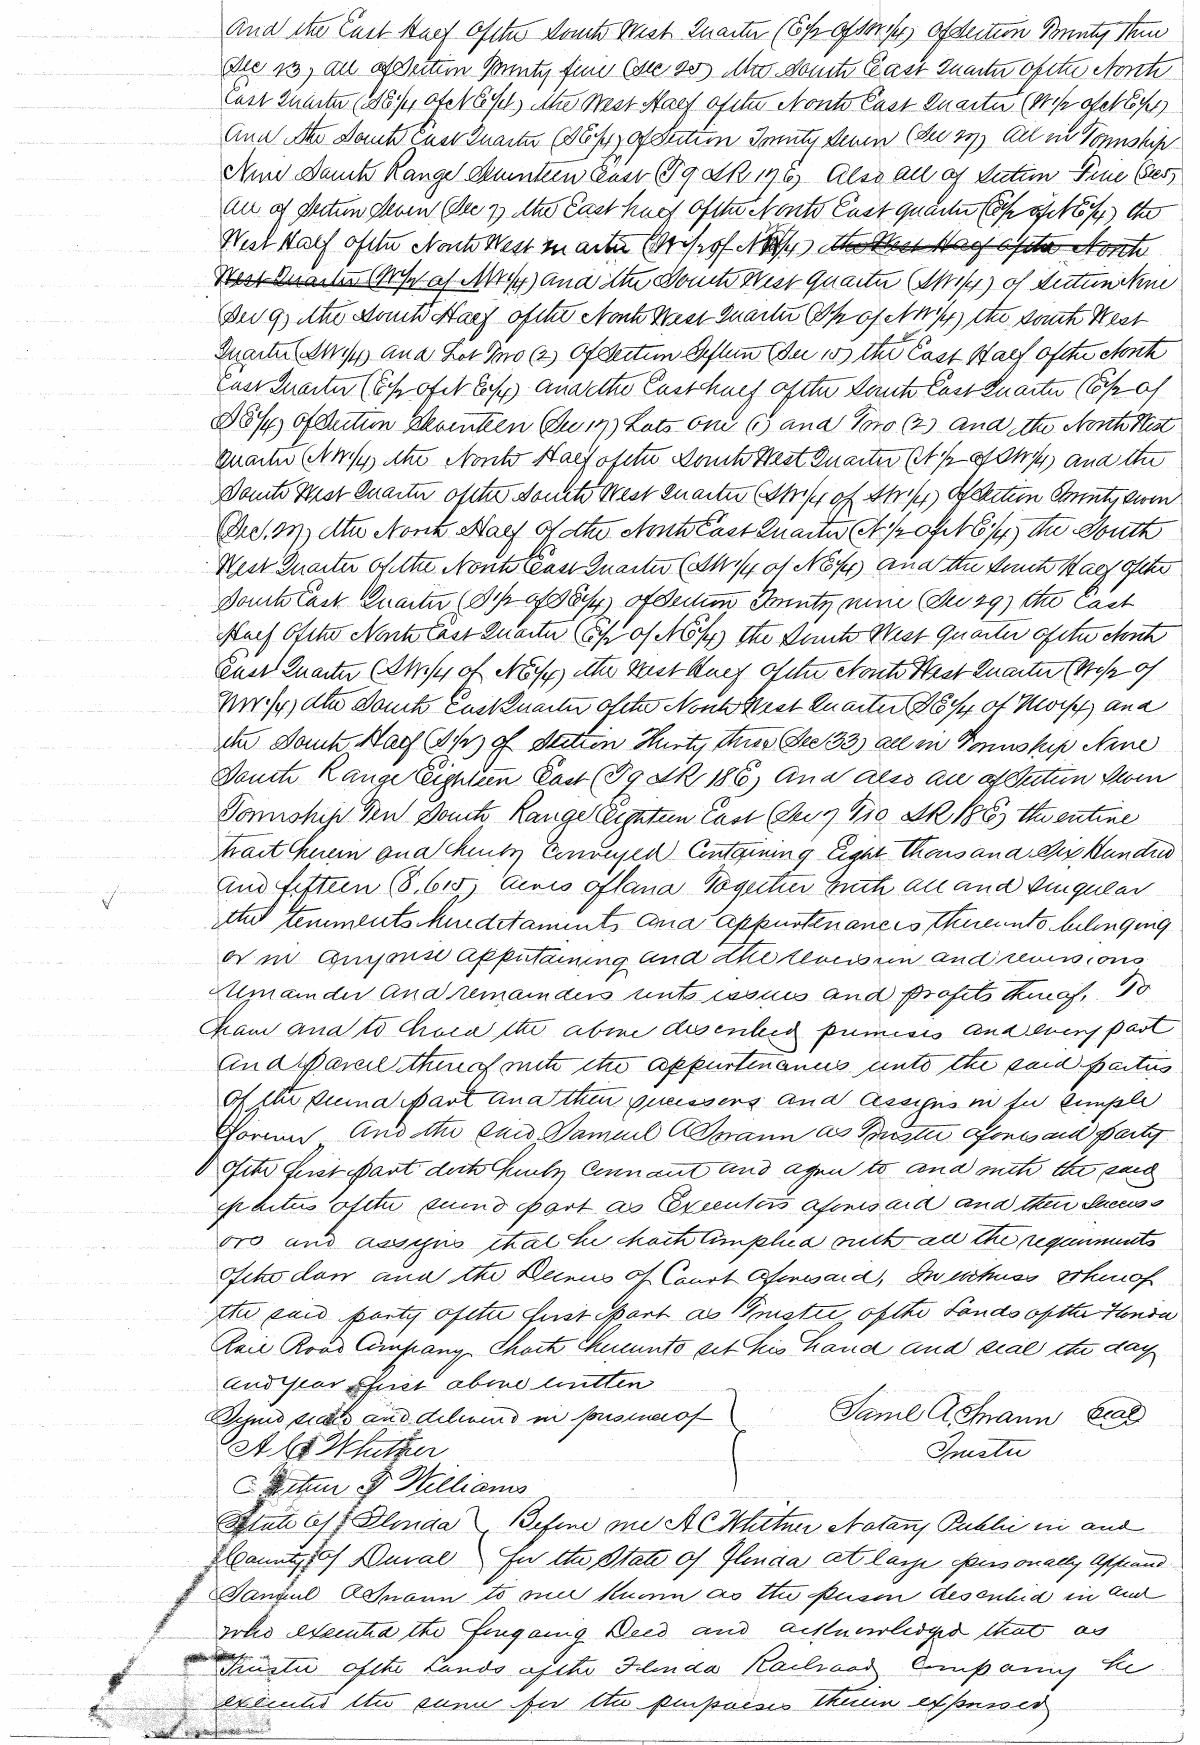 And the East Half of the South West Quarter (E½ of SW¼) of Section Twenty three
(Sec 23) all of Section Twenty five (Sec 25) the South East Quarter of the North
East Quarter (SE¼ of NE¼) the West Half of the North East Quarter (W½ of NE¼)
And the South East Quarter (SE¼) of Section Twenty Seven (Sec 27) All in Township
Nine South Range Seventeen East (T9 SR 17E) Also all of Section Five (Sec 5)
all of Section Seven (Sec 7) the East half of the North East quarter (E½ of NE¼) the
West Half of the North West quarter (W½ of NW¼) the West Half of the North
West Quarter (W½ of NW¼) and the South West Quarter (SW¼) of Section Nine
(Sec 9) the South Half of the North West Quarter (S½ of NW¼) the South West
Quarter (SW¼) and Lot Two (2) Of Section Fifteen (Sec 15) the East Half of the North
East Quarter (E½ of NE¼) and the East half of the South East Quarter (E½ of
SE¼) of Section Seventeen (Sec 17) Lots one (1) and Two (2) and the North West
Quarter (NW¼) the North Half of the South West Quarter (N½ of SW¼) and the
South West Quarter of the South West Quarter (SW¼ of SW¼) of Section Twenty seven
(Sec. 27) the North Half of the North East Quarter (N½ of NE¼) the South
West Quarter of the North East Quarter (SW¼ of NE¼) and the South Half of the
South East Quarter (S½ of SE¼) of Section Twenty nine (Sec 29) the East
Half of the North East Quarter (E½ of NE¼) the South West Quarter of the North
East Quarter (SW¼ of NE¼) the West Half of the North West Quarter (W½ of
NW¼) the South East Quarter of the North West Quarter (SE¼ of NW¼) and
the South Half (S½) of Section Thirty three (Sec 33) all in Township Nine
South Range Eighteen East (T9 SR 18E) And also all of Section Seven
Township Ten South Range Eighteen East (Sec 7 T10 SR 18E) the entire
tract herein and hereby conveyed containing Eight thousand Six Hundred
and fifteen (8.615) acres of land Together with all and singular
the tenements hereditaments and appurtenances thereunto belonging
or in anywise appertaining and the reversion and reversions
remainder and remainders rents issues and profits thereof. To
have and to hold the above described premises and every part
and parcel thereof with the appurtenances unto the said parties
of the second part and their successors and assigns in fee simple
forever And the said Samuel A Swann as Trustee aforesaid party
of the first part doth hereby covenant and agree to and with the said
parties of the second part as Executors aforesaid and their Success
ors and assigns that he hath complied with all the requirements
of the law and the Decrees of Court aforesaid, In witness whereof
the said party of the first part as Trustee of the Lands of the Florida
Rail Road Company hath hereunto set his hand and seal the day
and year first above written
Signed sealed and delivered in presence of Saml A. Swann Seal
A C Whitner Trustee
Williams
State of Florida } Before me A C Whitner Notary Public in and
County of Duval } for the State of Florida at large personally appeared
Samuel A Swann to me known as the person described in and
who executed the foregoing Deed and acknowledged that as
Trustee of the Lands of the Florida Railroad Company he
executed the same for the purposes therein expressed